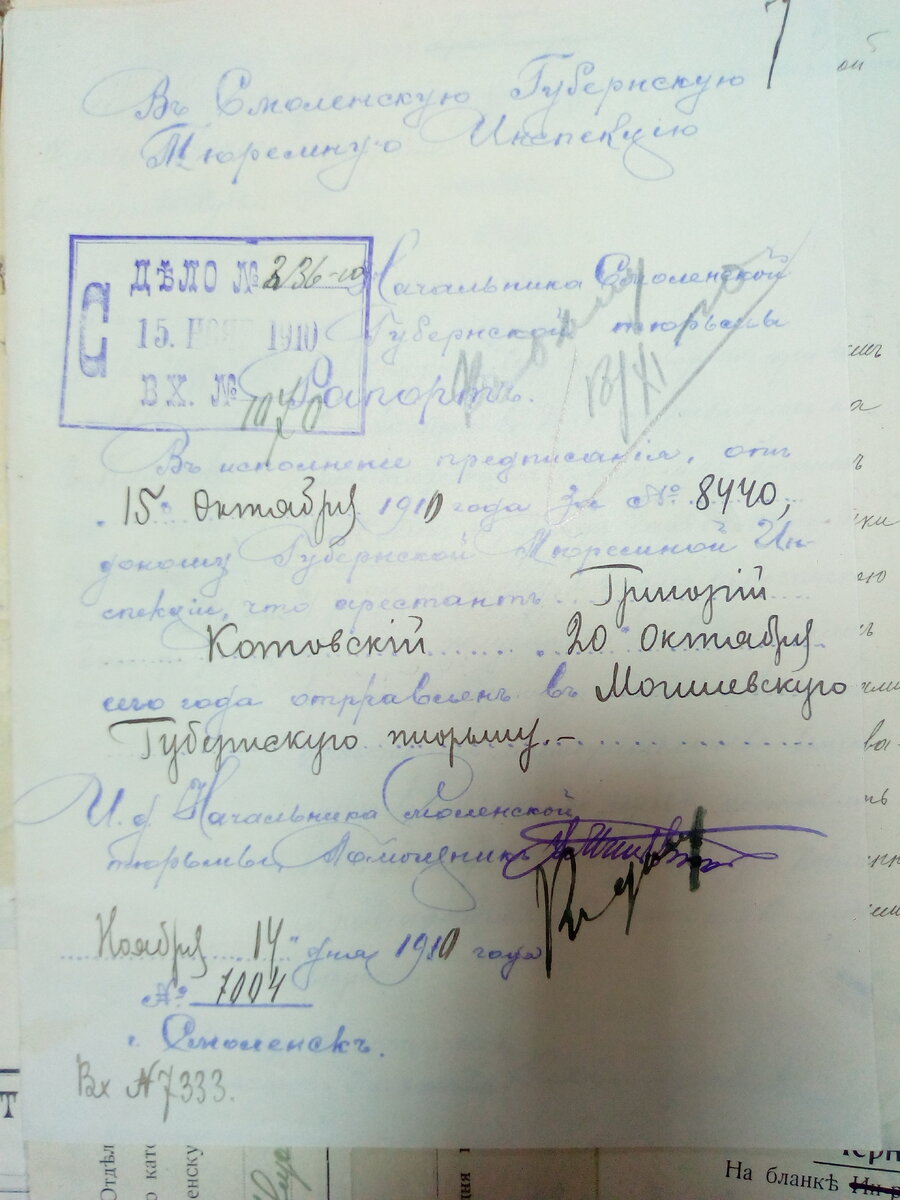 7
Въ Смоленскую Губернскую
Тюремную Инспекцію
ДѢЛО № 236-10
15. НОЯ 1910
ВХ. №
Начальника Смоленской
Губернской тюрьмы
Рапортъ.
13/XI
Въ исполненіе предписанія, отъ
15 Октября 1910 года за № 8440,
доношу Губернской Тюремной Ин-
спекціи, что арестантъ Григорій
Котовскій 20 Октября
сего года отправленъ въ Могилевскую
Губернскую тюрьму.-
И. д. Начальника Смоленской
тюрьмы, Помощникъ
Ноября 14 " дня 1910 года
№ 7004
г. Смоленскъ.
Вх № 7333.
На бланкѣ